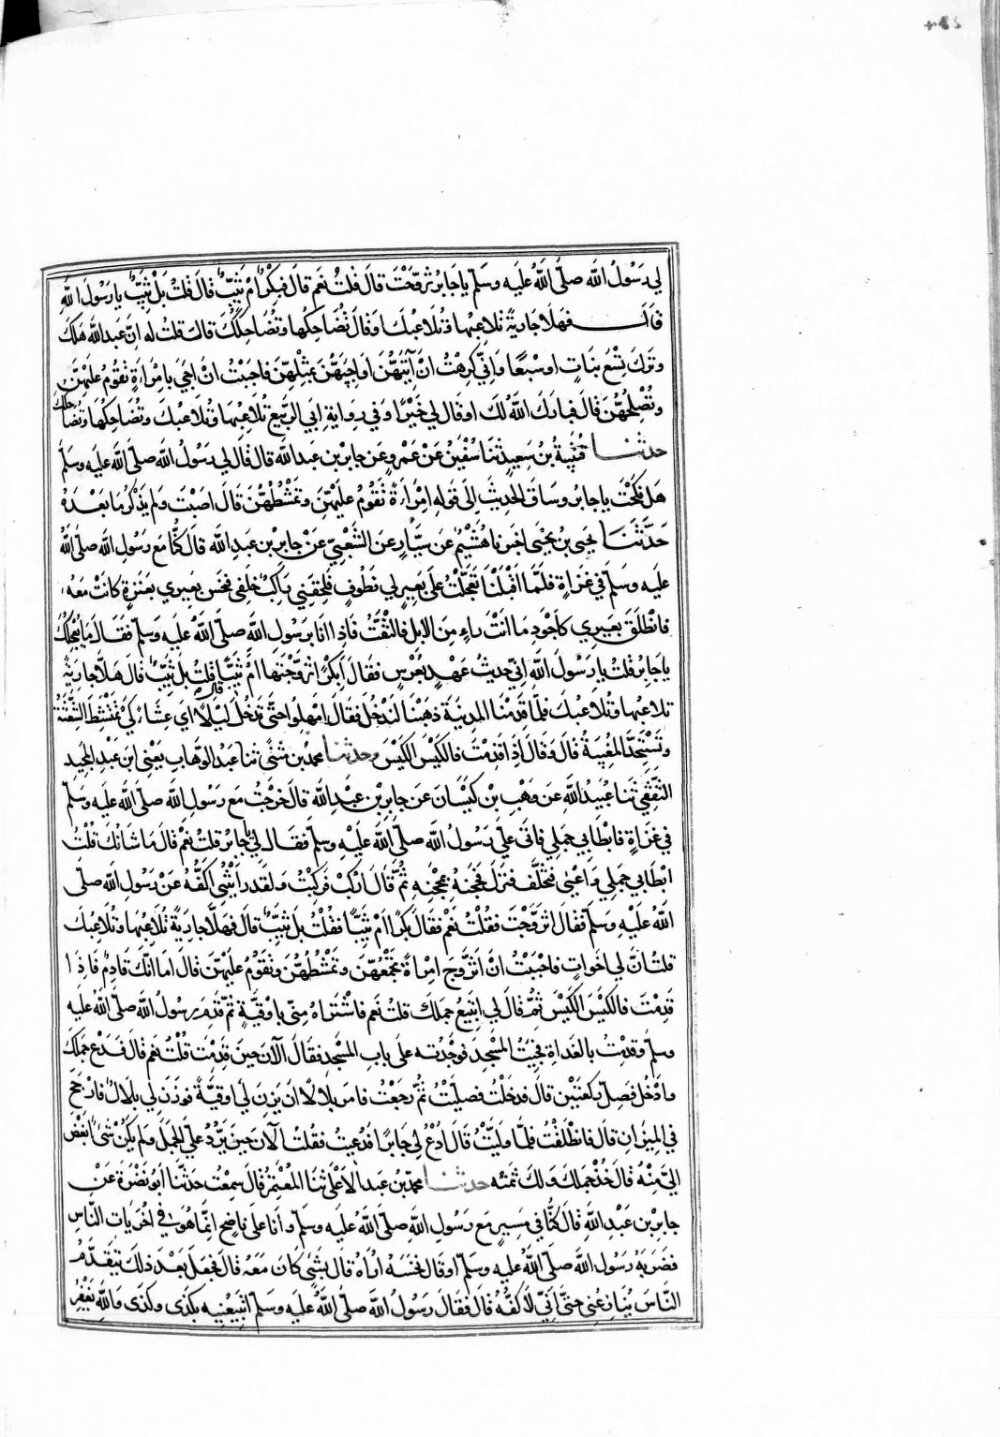 لي رسول الله صلى الله عليه وسلم يا جابر تزوجت قال قلت نعم قال فبكر ام ثيب قال قلت بل ثيب يا رسول الله
قال فهلا جارية تلاعبها وتلاعبك او قال تضاحكها وتضاحكك قال قلت له ان عبد الله هلك
وترك تسع بنات او سبعا واني كرهت ان آتيهن او اجيئهن بمثلهن فاحببت ان اجئ بامراة تقوم عليهن
وتصلحهن قال فبارك الله لك او قال لي خيرا وفي رواية ابي الربيع تلاعبها وتلاعبك وتضاحكها وتضاحكك
حدثنا قتيبة بن سعيد ثنا سفين عن عمرو عن جابر بن عبد الله قال قال لي رسول الله صلى الله عليه وسلم
هل نكحت يا جابر وساق الحديث الى قوله امراة تقوم عليهن وتمشطهن قال اصبت ولم يذكر ما بعده
حدثنا يحيى بن يحيى اخبرنا هشيم عن سيار عن الشعبي عن جابر بن عبد الله قال كنا مع رسول الله صلى الله
عليه وسلم في غزاة فلما اقبلنا تعجلت على بعير لي قطوف فلحقني راكب خلفي فنخس بعيري بعنزة كانت معه
فانطلق بعيري كاجود ما انت راء من الابل فالتفت فاذا انا برسول الله صلى الله عليه وسلم فقال ما يعجلك
يا جابر قلت يا رسول الله اني حديث عهد بعرس فقال ابكرا تزوجتها ام ثيبا قال قلت بل ثيبا قال هلا جارية
تلاعبها وتلاعبك فلما قدمنا المدينة ذهبنا لندخل فقال امهلوا حتى ندخل ليلا اي عشاء كي تمتشط الشعثة
وتستحد المغيبة قال وقال اذا قدمت فالكيس الكيس وحدثنا محمد بن مثنى ثنا عبد الوهاب يعني ابن عبد المجيد
الثقفي ثنا عبيد الله عن وهب بن كيسان عن جابر بن عبد الله قال خرجت مع رسول الله صلى الله عليه وسلم
في غزاة فابطا بي جملي فاتى علي رسول الله صلى الله عليه وسلم فقال لي يا جابر قلت نعم قال ما شانك قلت
ابطا بي جملي واعيى فتخلف فنزل فحجنه بمحجنه ثم قال اركب فركبت ولقد رايتني اكفه عن رسول الله صلى
الله عليه وسلم فقال اتزوجت فقلت نعم فقال بكرا ام ثيبا فقلت بل ثيب قال فهلا جارية تلاعبها وتلاعبك
قلت ان لي اخوات فاحببت ان اتزوج امراة تجمعهن وتمشطهن وتقوم عليهن قال اما انك قادم فاذا
قدمت فالكيس الكيس ثم قال لي اتبيع جملك قلت نعم فاشتراه مني باوقية ثم قدم رسول الله صلى الله عليه
وسلم وقدمت بالغداة فجيت المسجد فوجدته على باب المسجد فقال الآن حين قدمت قلت نعم قال فدع جملك
وادخل فصل ركعتين قال فدخلت فصليت ثم رجعت فامر بلالا ان يزن لي اوقية فوزن لي بلال فارجح
في الميزان قال فانطلقت فلما وليت قال ادع لي جابرا فدعيت فقلت الآن حين يرد علي الجمل ولم يكن شئ ابغض
الي منه قال خذ جملك ولك ثمنه حدثنا محمد بن عبد الاعلى ثنا المعتمر قال سمعت حدثنا ابو نضرة عن
جابر بن عبد الله قال كنا في مسير مع رسول الله صلى الله عليه وسلم وانا على ناضح انما هو في اخريات الناس
فضربه رسول الله صلى الله عليه وسلم او قال نخسه اراه قال بشئ كان معه قال فجعل بعد ذلك يتقدم
الناس ينازعني حتى اني لاكفه قال فقال رسول الله صلى الله عليه وسلم اتبيعنيه بكذى وكذى والله يغفر